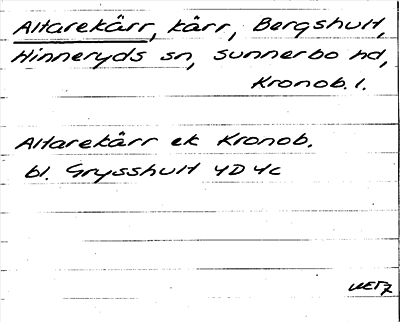 Altarekärr, kärr, Bergshult,
Hinneryds sn, Sunnerbo hd,
Kronob. l.
Altarekärr ek Kronob.
bl. Grysshult 4D 4c